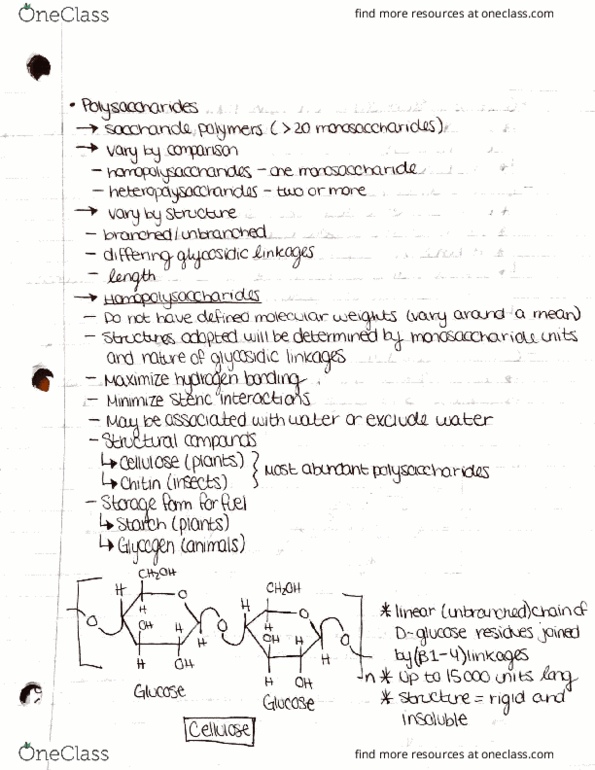 OneClass
find more resources at oneclass.com
• Polysaccharides
→ saccharide polymers (>20 monosaccharides)
→ vary by comparison
- homopolysaccharides - one monosaccharide
- heteropolysaccharides - two or more
→ vary by structure
- branched/unbranched
- differing glycosidic linkages
- length
→ Homopolysaccharides
- Do not have defined molecular weights (vary around a mean)
- Structures adopted will be determined by monosaccharide units
and nature of glycosidic linkages
- Maximize hydrogen bonding
- Minimize steric interactions
- May be associated with water or exclude water
- Structural compounds
↳ Cellulose (plants)
↳ Chitin (insects)
} Most abundant polysaccharides
- Storage form for fuel
↳ Starch (plants)
↳ Glycogen (animals)
CH2OH
CH2OH
H
O
H
O
H
H
O
OH
H
O
OH
H
O
H
H
H
OH
H
OH
n
Glucose
Glucose
Cellulose
* linear (unbranched) chain of
D-glucose residues joined
by (β1-4) linkages
* Up to 15000 units long
* Structure = rigid and
insoluble
OneClass
find more resources at oneclass.com